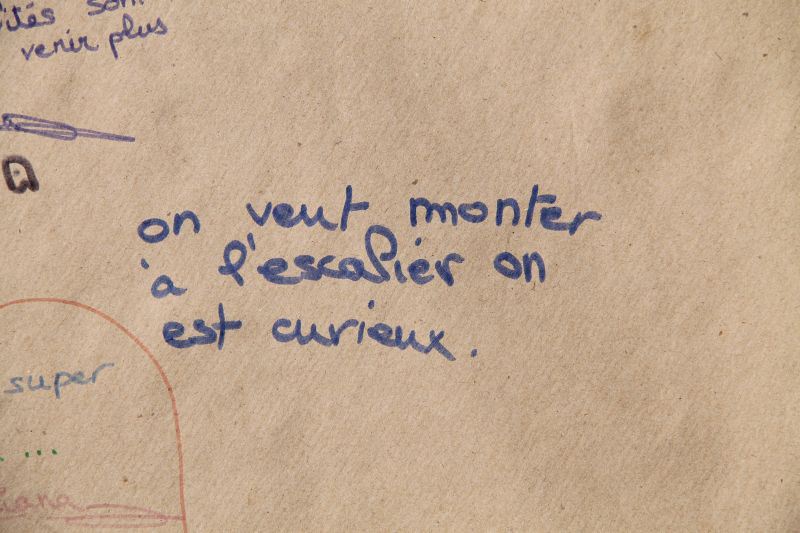 sont
venir plus
on veut monter
à l'escalier on
est curieux.
super
...